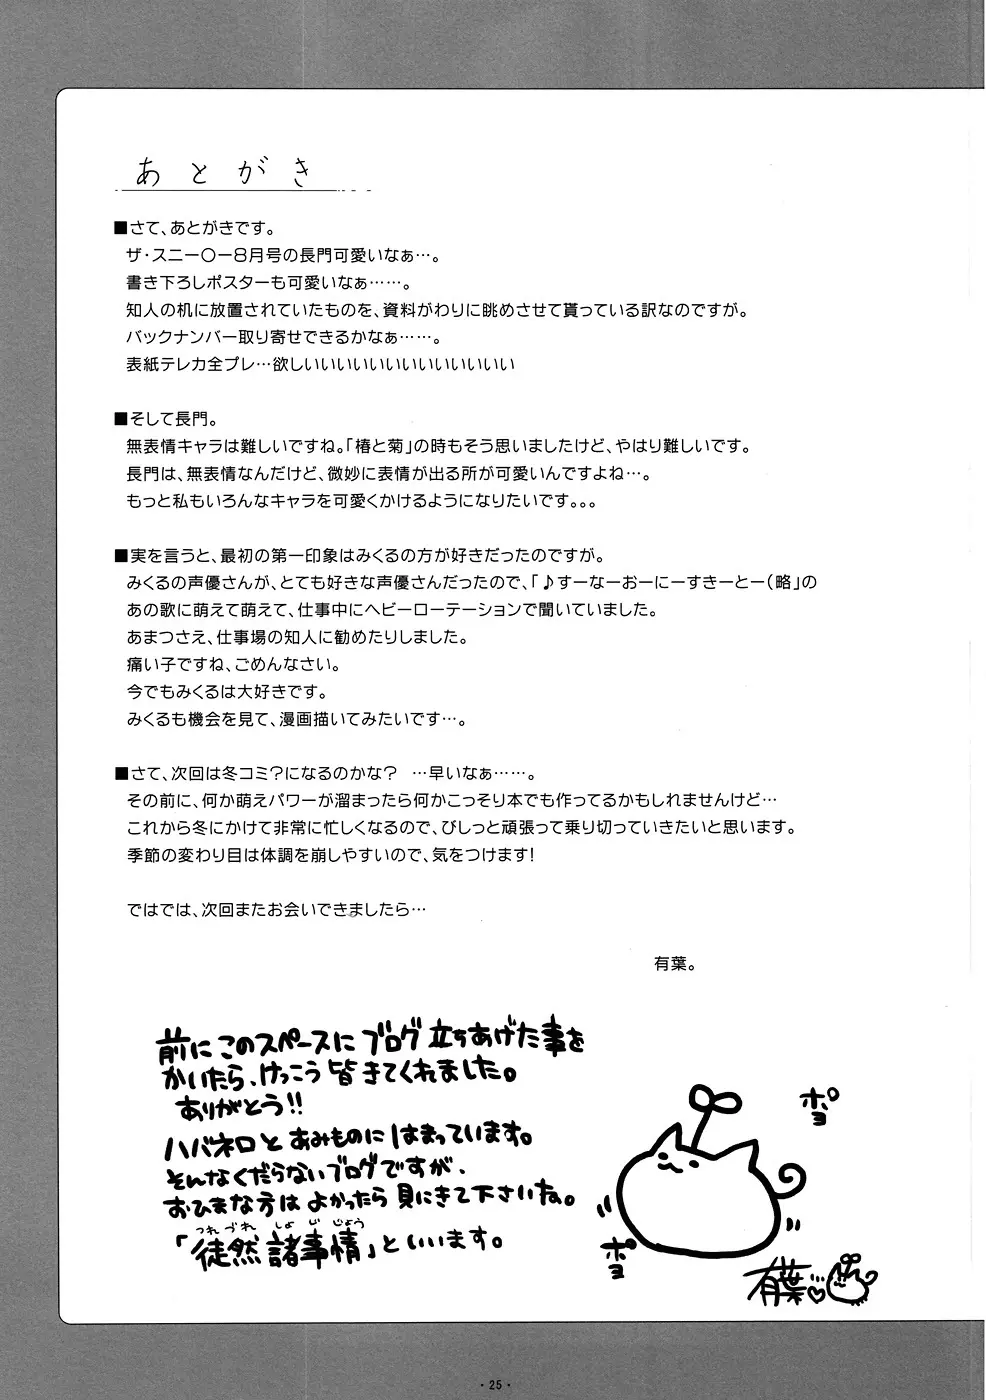 あとがき
■さて、あとがきです。
ザ・スニー〇ー8月号の長門可愛いなぁ…。
書き下ろしポスターも可愛いなぁ……。
知人の机に放置されていたものを、資料がわりに眺めさせて貰っている訳なのですが。
バックナンバー取り寄せできるかなぁ……。
表紙テレカ全プレ…欲しいいいいいいいいいいいいいい
■そして長門。
無表情キャラは難しいですね。「椿と菊」の時もそう思いましたけど、やはり難しいです。
長門は、無表情なんだけど、微妙に表情が出る所が可愛いんですよね…。
もっと私もいろんなキャラを可愛くかけるようになりたいです。。。
■実を言うと、最初の第一印象はみくるの方が好きだったのですが。
みくるの声優さんが、とても好きな声優さんだったので、「♪すーなーおーにーすきーとー(略」の
あの歌に萌えて萌えて、仕事中にヘビーローテーションで聞いていました。
あまつさえ、仕事場の知人に勧めたりしました。
痛い子ですね、ごめんなさい。
今でもみくるは大好きです。
みくるも機会を見て、漫画描いてみたいです…。
■さて、次回は冬コミ?になるのかな? …早いなぁ……。
その前に、何か萌えパワーが溜まったら何かこっそり本でも作ってるかもしれませんけど…
これから冬にかけて非常に忙しくなるので、びしっと頑張って乗り切っていきたいと思います。
季節の変わり目は体調を崩しやすいので、気をつけます!
ではでは、次回またお会いできましたら…
有葉。
前にこのスペースにブログ立ちあげた事を
かいたら、けっこう皆きてくれました。
ありがとう!!
ハバネロとあみものにはまっています。
そんなくだらないブログですが、
おひまな方はよかったら見にきて下さいね。
つれづれしょじじょう
「徒然諸事情」といいます。
ポヨ
ポヨ
有葉
・25・